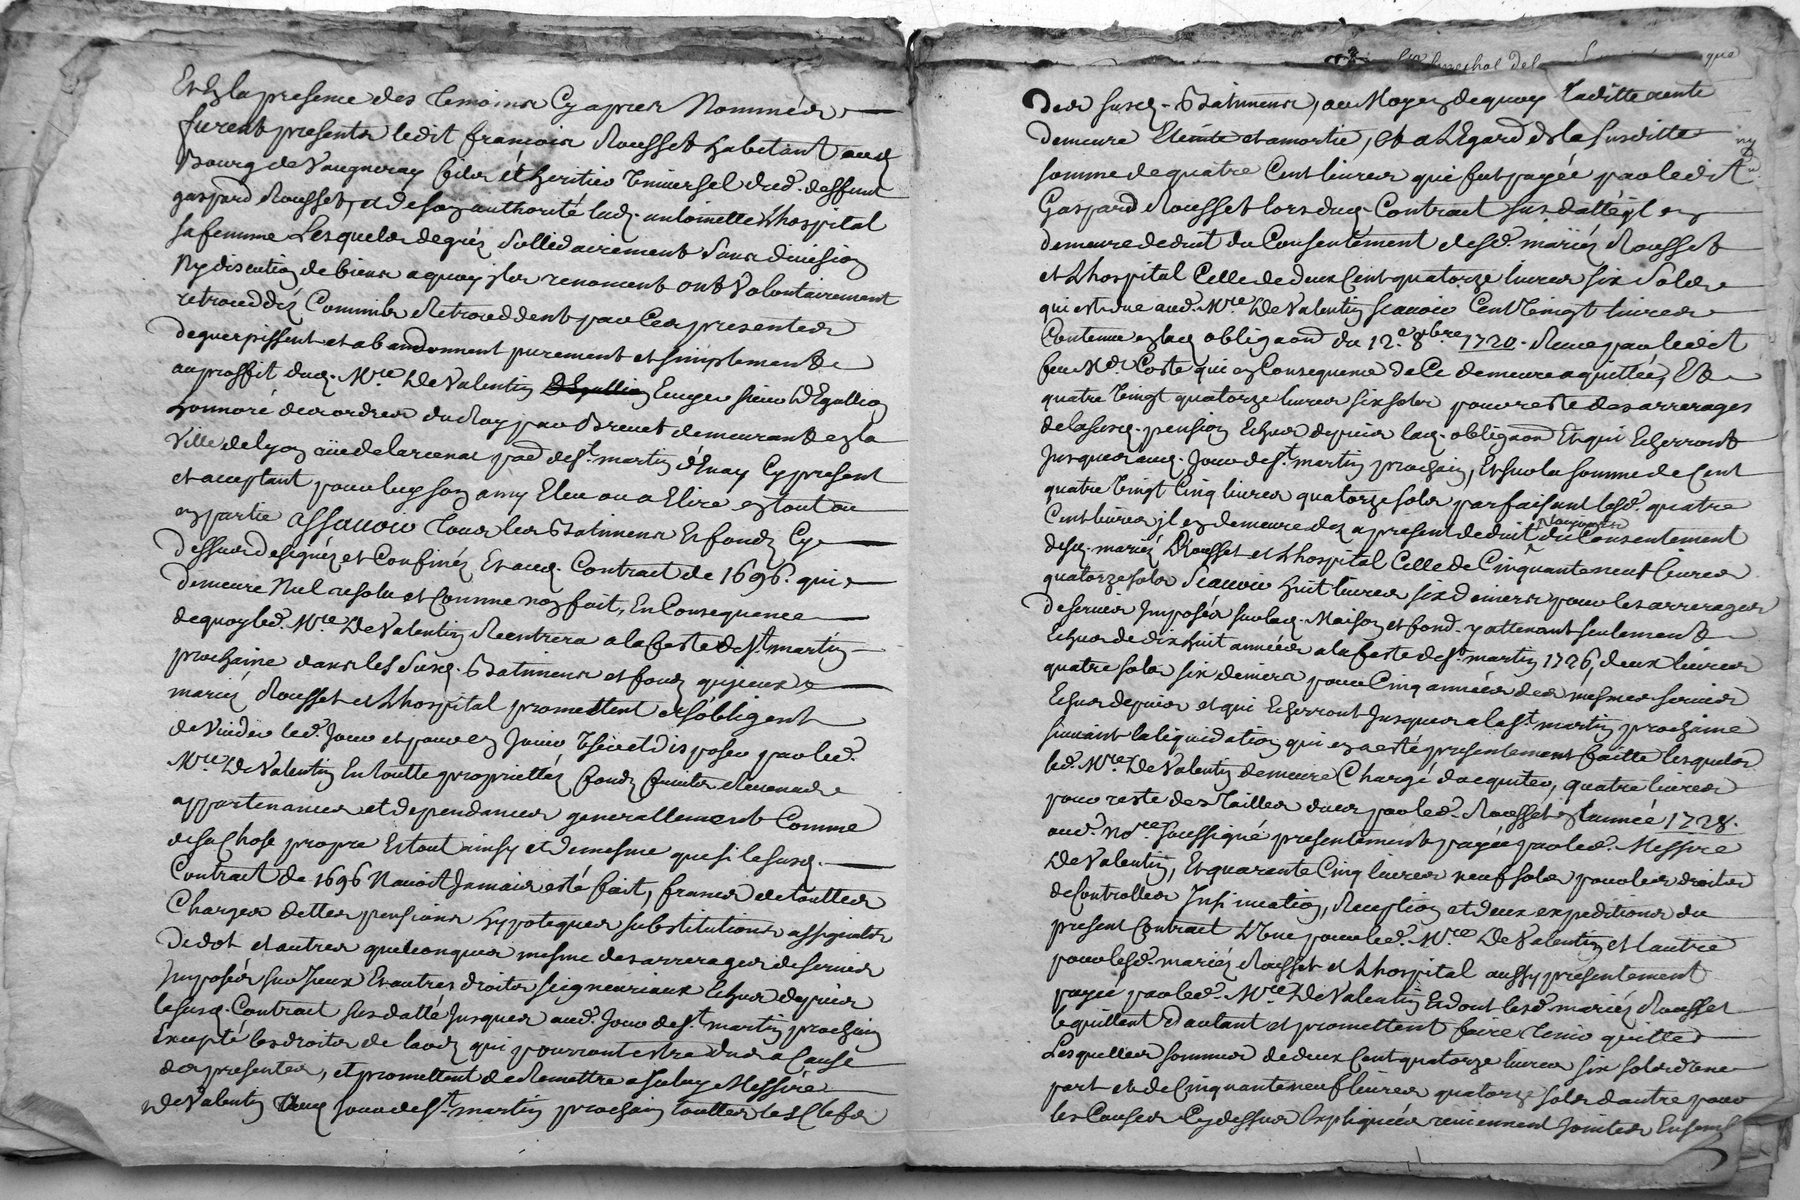 Et En la presence des temoins Cy apres Nommés
furent presents ledit françois Rousset habitant aud.
Bourg de Vaugneray fils et heritier Universel dud. deffunt
gaspard Rousset, et de son authorité lad. antoinette L'hospital
sa femme Lesquels de grés sollidairement sans division
Ny discution de biens a quoy ils renoncent ont Volontairement
retroceddéz Comm'ils Retroceddent par Ces presentes
deguerpissent et abandonnent purement et simplement
au proffit dud. Mre De Valentin Ecuyer sieur D'Egullion
honnoré des ordres du Roy par Brevet demeurant en la
Ville de lyon rüe de larcenac parr. de St. martin d'Enay Cy present
et acceptant pour luy son amy Eleu ou a Elire en tout ou
en partie assavoir tous les Batimens Et fondz Cy
dessus designéz et Confinéz Et aud. Contract de 1696. qui
demeure Nul resolu et comme non fait, En Consequence
de quoy led. Mre De Valentin Rentrera a la feste de St. martin
prochaine dans les susd. Batimens et fondz que iceux
mariéz Rousset et L'hospital promettent et s'obligent
de Vuider led. Jour et pour en Jouir User et disposer par led.
Mre De Valentin En toutte proprietté, fondz fruits Revenus
appartenances et dependances generallement Comme
de sa Chose propre Et tout ainsy et de mesme que si le susd.
Contract de 1696 N'avoit Jamais esté fait, francs de touttes
Charges dettes pensions hypoteques substitutions assignats
de dot et autres quelconques mesme des arrerages de servis
Imposés sur Iceux Et autres droits seigneuriaux Echus depuis
le susd. Contract sus datté Jusques aud. Jour de St. martin prochain
Excepté les droits de laodz qui pourront estre dus a Cause
des presentes, et promettent de Remettre a Iceluy Messire
De Valentin aud. jour de St. martin prochain touttes les Clefs
des susd. Batimens, au Moyen de quoy Laditte rente
demeure Eteinte et amortie, Et a L'Egard de la susditte
somme de quatre Cent livres qui fut payée par ledit
Gaspard Rousset lors dud. Contract sus datté, il en
demeure deduit du Consentement desd. mariéz Rousset
et L'hospital Celle de deux Cent quatorze livres six sols
qui est due aud. Mre De Valentin scavoir Cent Vingt livres
Contenue en lad. obligaon du 12.e 8bre 1720. Receue par ledit
feu Me. Coste qui en Consequence de Ce demeure aquittée, Et
quatre Vingt quatorze livres six sols pour reste des arrerages
de la susd. pension Echus depuis lad. obligaon Et qui Echerront
Jusques aud. Jour de St. martin prochain, Et sur la somme de Cent
quatre Vingt Cinq livres quatorze sols parfaisant lesd. quatre
Cent livres il en demeure des a present deduit du Consentement
desd. mariéz Rousset et L'hospital Celle de Cinquante neuf livres
quatorze sols scavoir huit livres six deniers pour les arrerages
de servis Imposés sur lad. Maison et fond y attenant seulement
Echus de dix huit années a la feste de St. martin 1726, deux livres
quatre sols six deniers pour Cinq années des mesmes servis
Echus depuis et qui Echerront Jusques a la St. martin prochaine
suivant la liquidation qui en a esté presentement faitte lesquels
led. Mre De Valentin demeure Chargé d'acquiter, quatre livres
pour reste des tailles dues par led. Rousset en l'année 1728.
aud. Nore soussigné presentement payée par led. Messire
De Valentin, Et quarante Cinq livres neuf sols pour les droits
de Controlle, Insinuation, Reception et deux expeditions du
present Contract L'Une pour led. Mre De Valentin et l'autre
pour lesd. mariéz Rousset et L'hospital aussy presentement
payé par led. Mre De Valentin Et dont lesd. mariéz Rousset
le quittent d'autant et promettent faire tenir quitte
Lesquelles sommes de deux Cent quatorze livres six sols d'une
part et de Cinquante neuf livres quatorze sols d'autre pour
les Causes Cy dessus Expliquées reviennent Jointes Ensemb